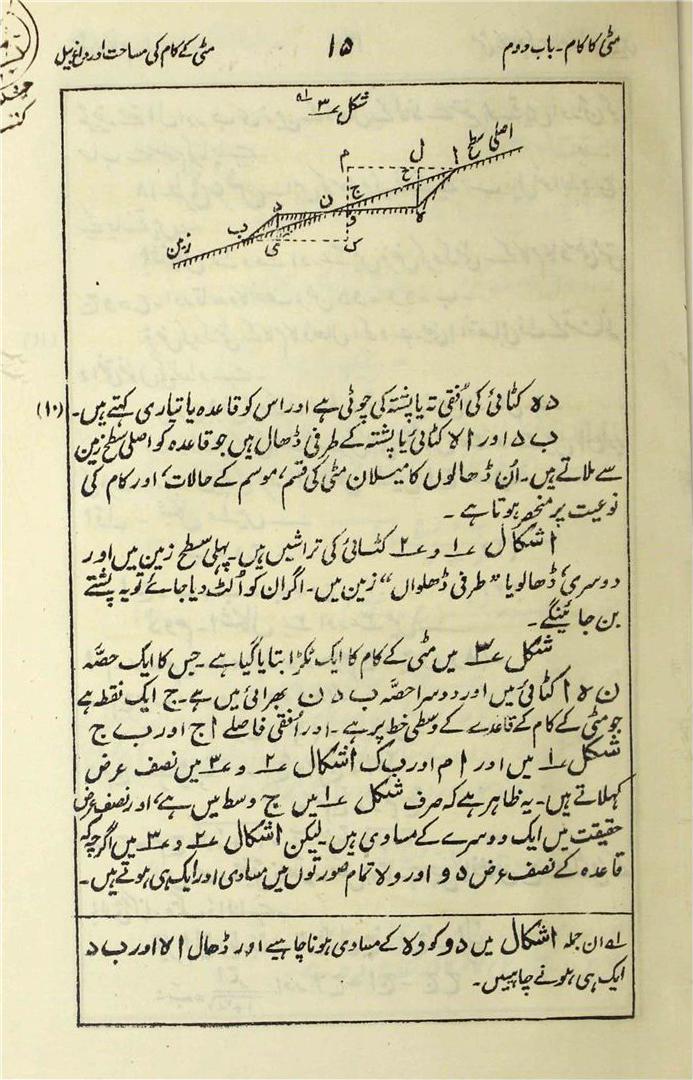 مٹی کا کام۔ باب دوم
۱۵
مٹی کے کام کی مساحت اور داغ بیل
شکل ۳ ؎۱
اصلی سطح
زمین
م
ل
ا
ح
ج
ن
د
و
ہ
ب
ی
ک
د ہ کٹائی کی اُفقی تہ یا پشتہ کی چوٹی ہے اور اس کو قاعدہ یا تیاری کہتے ہیں۔ (۱۰)
ب د اور ا ہ کٹائی یا پشتہ کے طرفی ڈھال ہیں جو قاعدہ کو اصلی سطح زمین
سے ملاتے ہیں۔ اُن ڈھالوں کا میلان مٹی کی قسم، موسم کے حالات، اور کام کی
نوعیت پر منحصر ہوتا ہے۔
اشکال ۱ و ۲ کٹائی کی تراشیں ہیں۔ پہلی سطح زمین میں اور
دوسری، ڈھالو یا ”طرفی ڈھلواں“ زمین میں۔ اگر ان کو اُلٹ دیا جائے تو یہ پشتے
بن جائینگے۔
شکل ۳ میں مٹی کے کام کا ایک ٹکڑا بتایا گیا ہے۔ جس کا ایک حصّہ
ن ہ ا کٹائی میں اور دوسرا حصّہ ب د ن بھرائی میں ہے۔ ج ایک نقطہ ہے
جو مٹی کے کام کے قاعدے کے وسطی خط پر ہے۔ اور اُفقی فاصلے ا ج اور ب ج
شکل ۱ میں اور ا م اور ب ک اشکال ۲ و ۳ میں نصف عرض
کہلاتے ہیں۔ یہ ظاہر ہے کہ صرف شکل ۱ میں ج وسط میں ہے، اور نصف عرض
حقیقت میں ایک دوسرے کے مساوی ہیں۔ لیکن اشکال ۲ و ۳ میں اگرچہ
قاعدہ کے نصف عرض د و اور و ہ تمام صورتوں میں مساوی اور ایک ہی ہوتے ہیں۔
؎۱ ان جملہ اشکال میں د و کو و ہ کے مساوی ہونا چاہیے اور ڈھال ا ہ اور ب د
ایک ہی ہونے چاہییں۔